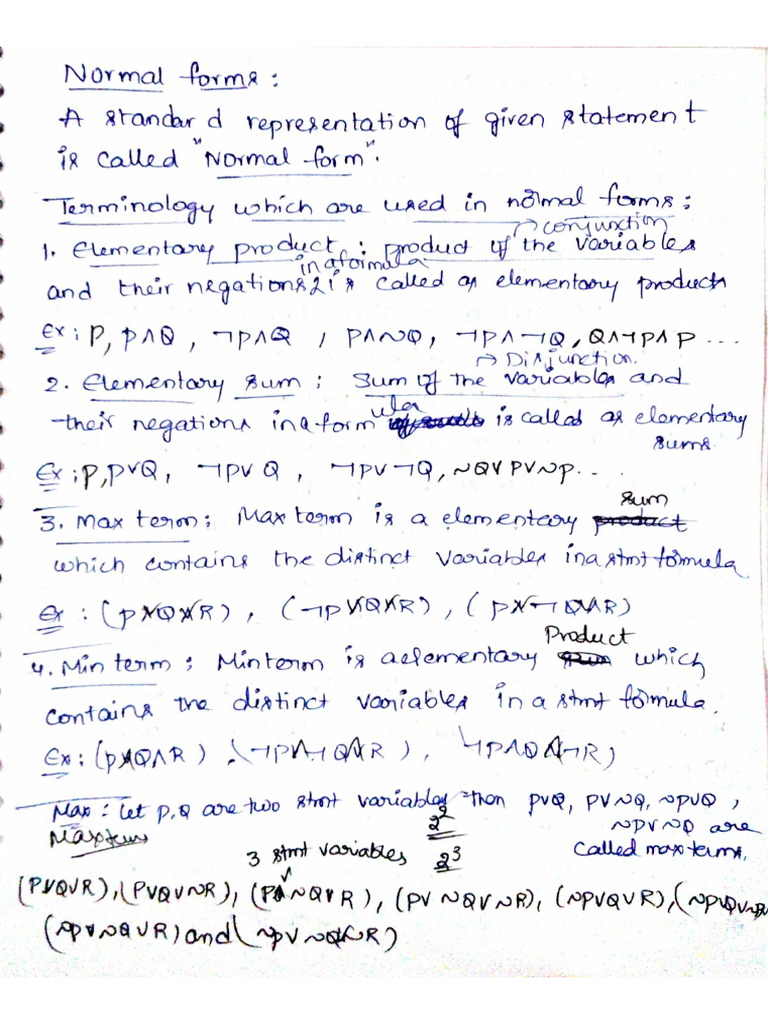 Normal forms :
A standard representation of given statement
is called "Normal form".
Terminology which are used in normal forms :
→ conjunction
1. Elementary product : product of the variables
in a formula
and their negations is called as elementary products
Ex : P, P∧Q, ¬P∧Q, P∧~Q, ¬P∧¬Q, Q∧¬P∧P ...
→ Disjunction.
2. Elementary sum : Sum of the variables and
their negations in a formula is called as elementary
sums.
Ex : P, P∨Q, ¬P∨Q, ¬P∨¬Q, ~Q∨P∨~P ...
sum
3. Max term : Max term is a elementary product
which contains the distinct variables in a stmt formula
Ex : (P∨Q∨R), (¬P∨Q∨R), (P∨¬Q∨R)
Product
4. Min term : Minterm is a elementary sum which
contains the distinct variables in a stmt formula.
Ex : (P∧Q∧R), (¬P∧¬Q∧R), (¬P∧Q∧¬R)
Max : Let P, Q are two stmt variables then P∨Q, P∨~Q, ~P∨Q,
2² ~P∨~Q are
Maxterm called max terms.
3 stmt variables 2³
(P∨Q∨R), (P∨Q∨~R), (P∨~Q∨R), (P∨~Q∨~R), (~P∨Q∨R), (~P∨Q∨~R)
(~P∨~Q∨R) and (~P∨~Q∨~R)